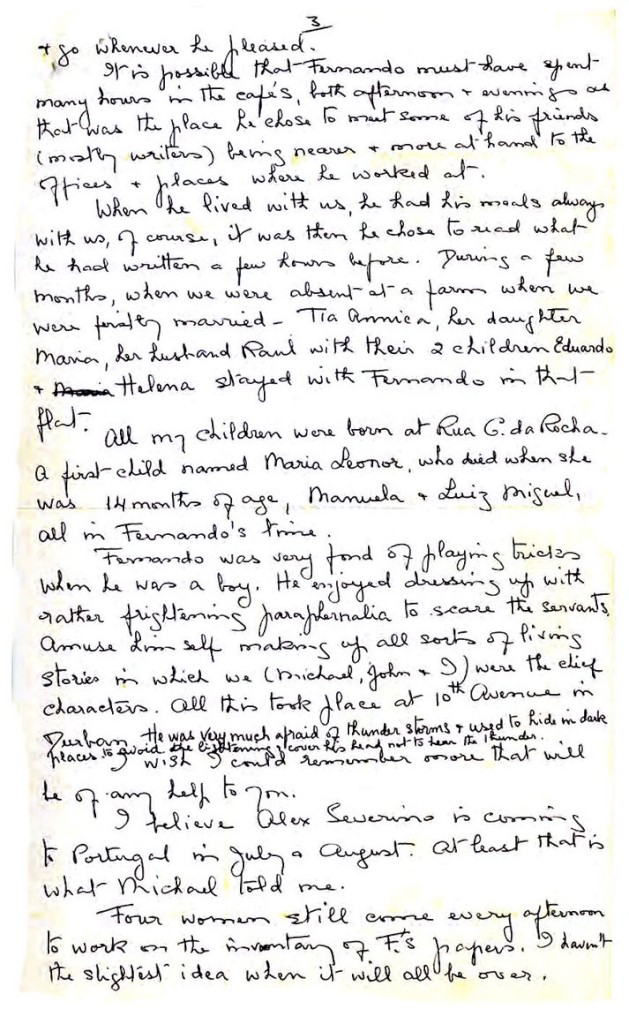 3
+ go whenever he pleased.
It is possible that Fernando must have spent
many hours in the cafés, both afternoon + evenings as
that was the place he chose to meet some of his friends
(mostly writers) being nearer + more at hand to the
Offices + places where he worked at.
When he lived with us, he had his meals always
with us, of course, it was then he chose to read what
he had written a few hours before. During a few
months, when we were absent at a farm when we
were firstly married – Tia Annica, her daughter
Maria, her husband Raul with their 2 children Eduardo
+ Maria Helena stayed with Fernando in that
flat.
All my children were born at Rua C. da Rocha.
A first child named Maria Leonor, who died when she
was 14 months of age, Manuela + Luiz Miguel,
all in Fernando's time.
Fernando was very fond of playing tricks
when he was a boy. He enjoyed dressing up with
rather frightening paraphernalia to scare the servants,
Amuse himself making up all sorts of living
stories in which we (Michael, John + I) were the chief
characters. All this took place at 10th Avenue in
Durban. He was very much afraid of thunder storms + used to hide in dark
places to avoid the lightening + cover his head not to hear the thunder.
I wish I could remember more that will
be of any help to you.
I believe Alex Severino is coming
to Portugal in July o August. At least that is
what Michael told me.
Four women still come every afternoon
to work on the inventary of F.'s papers. I haven't
the slightest idea when it will all be over.